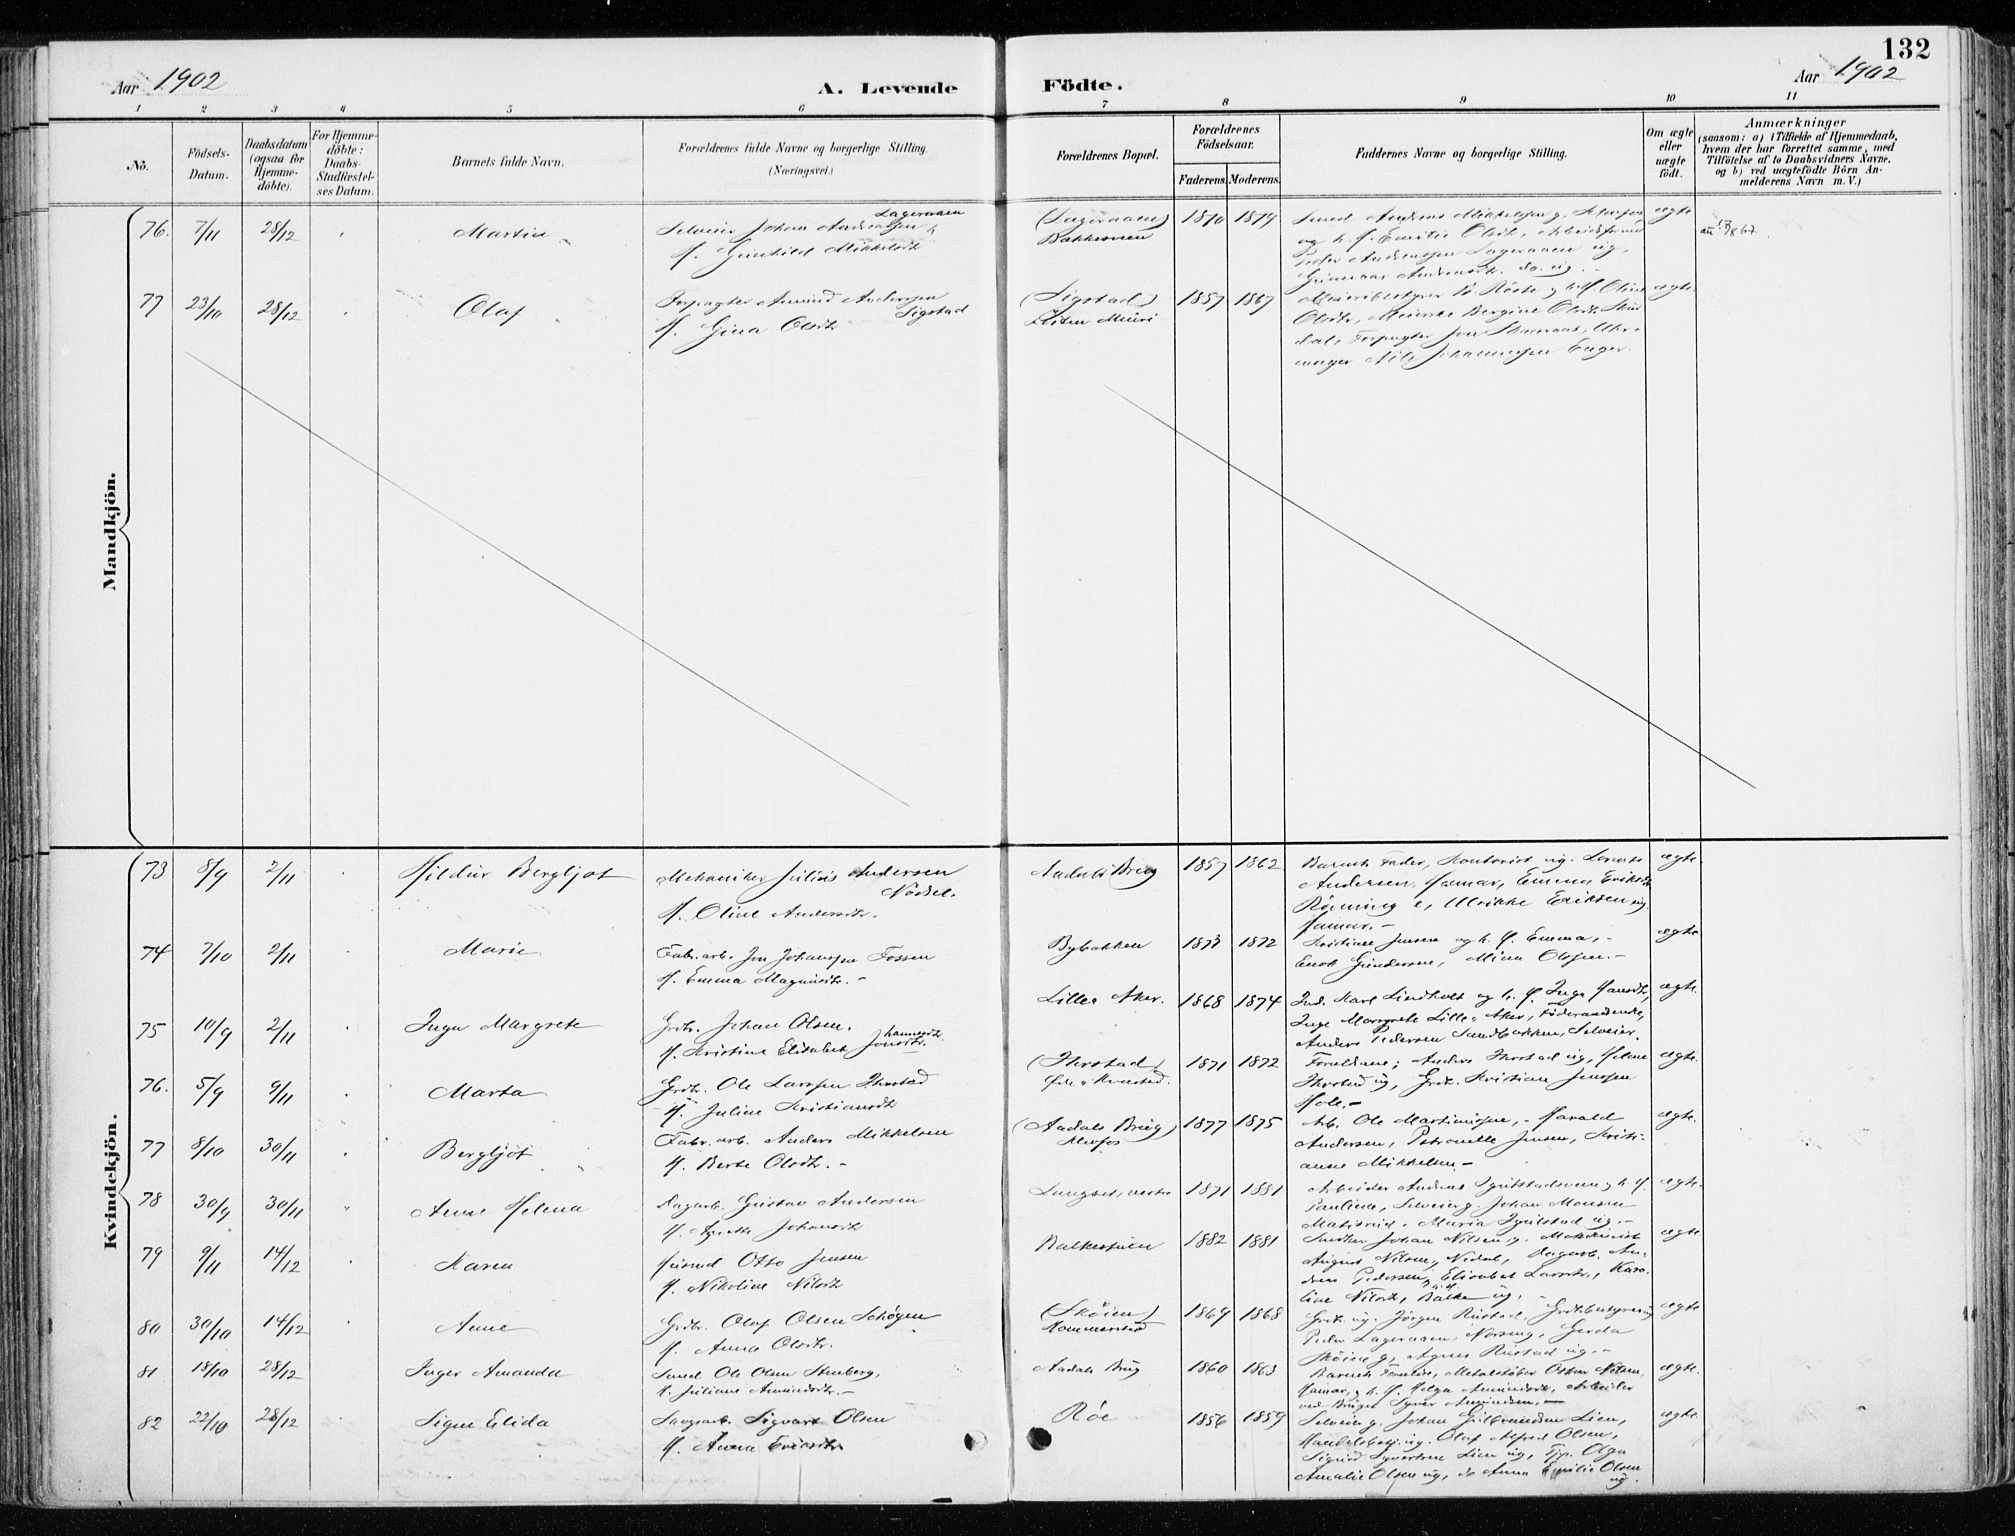 132
Aar 1902
A. Levende Födte.
Aar 1902
1 2 3 4 5 6 7 8 9 10 11
No.
Födsels-Datum.
Daabsdatum (ogsaa for Hjemme-döbte).
For Hjemme-döbte: Daabs-Stadfæstel-ses Datum.
Barnets fulde Navn.
Forældrenes fulde Navne og borgerlige Stilling.
(Næringsvei.)
Forældrenes Bopæl.
Forældrenes Födselsaar.
Faderens. Moderens.
Faddernes Navne og borgerlige Stilling.
Om ægte eller uægte födt.
Anmærkninger
(saasom: a) i Tilfælde af Hjemmedaab,
hvem der har forrettet samme, med
Tilföielse af to Daabsvidners Navne.
og b) ved uægtefödte Börn An-
melderens Navn m. V.)
Mandkjön.
76. 7/11 28/12 Martin
Selveier Johan Andreassen Lageraaen
H. Gunhild Mikkelsdtr
(Lageraaen)
Bakkestuen
1870 1879
Smed Andreas Mikkelsen
og h. H. Emilie Olsdtr,
Peder Andreassen Lageraaen ug,
Gunvaar Andreasdtr. do. ug.
ægte
77 23/10 28/12 Olaf
Forpagter Amund Anderssen
Sigstad
H. Gina Olsdtr
(Sigstad)
1857 1867
Meieribestyrer
Olsdtr, Meierske Bergine Olsdtr
Forpagter Jon
mager Nils Johannessen Enger.
ægte
Kvindekjön.
73 8/9 2/11 Hildur Bergljot
Mekaniker Julius Andersen
Nödsel.
H. Oline Andersdtr.
Aadals Brug
1857 1862
Barnets Fader, Kontorist ug. Lorents
Andersen, Hamar, Emma Eriksdtr
Rönning e, Ulrikke Eriksen ug.
Hamar.-
ægte
74 7/10 2/11 Marie
Fabr. arb. Jon Johanssen Fossen
H. Emma Magnusdtr.-
Bybakken
1877 1872
Kristian Jensen og h. H. Emma,-
Enok Gundersen, Mina Olssen.-
ægte
75 10/9 2/11 Inga Margrete
Grdbr. Johan Olsen.
H. Kristine Elisabet Johannesdtr.
Lille Aker.
1868 1874
Ind. Karl Lindholt og h. H. Inga Hansdtr,
Inga Margrete Lille-Aker, Föderaadsenke,
Anders Pedersen Sandbakken, Selveier.
ægte
76. 5/9 9/11 Marta
Grdbr. Ole Larssen Thorstad
H. Juline Kristiansdtr
(Thorstad)
1871 1872
Forældrene; Anders Thorstad ug, Helene
Thorstad ug, Grdbr. Kristian Jenssen
Hole.-
ægte
77 8/10 30/11 Bergljot
Fabr. arb. Anders Mikkelsen
H. Berte Olsdtr.-
(Aadals Brug)
Klevfos
1877 1875
Arb. Ole Martinussen,- Harald
Andersen, Petronelle Jensen, Kristi-
anne Mikkelsen.-
ægte
78 30/9 30/11 Anne Helena
Dagarb. Gustav Andersen
H. Agnethe Johansdtr
Langset, vestre
1871 1881
Arbeider Andreas
Pauline, Selveier g. Johan Monsen
Maria
ægte.
79 9/11 14/12 Karen
Husmd Otto Jensen
H. Nikoline Nilsdtr
Balkestuen
1882 1881
Snedker Johan Nilsen g. Maskinist
August Nilsen, Nedal, dagarb. An-
dreas Pedersen, Elisabet Larsdtr., Karo-
line Nilsdtr, Balke ug,
ægte
80 30/10 14/12 Anne
Grdbr. Olaf Olsen Schögen
H. Anna Olsdtr.
(Sköien)
Kommerstad
1869 1868
Grdbr. ug. Jörgen Rustad, Grdbr.bestyrer ug
Peder Lageraaen, Gerda
Sköien g, Agnes Rustad ug.-
ægte
81 18/10 28/12 Inger Amanda
Smed Ole Olsen Stenberg,
H. Juliane Amundsdtr.-
Aadals Brug
1860 1863
Barnets Forældre, Metalstöber Oskar Nilsen,
Hamar, g h. H. Helga Amundsdtr, Arbeider
ved Bruget Syver Amundsen.-
ægte.
82 22/10 28/12 Signe Elida
Saugarb. Sigvart Olsen
H. Anna Eriksdtr.
Röe
1856 1859
Selveier g. Johan Gulbrandsen Lien,
Handelsbetj. ug. Olaf Alfred Olsen,
Sigurd Syvertsen Lien ug, Tjp. Olga
Amalie Olsen ug, do Anna Emilie Olsen
ug.
ægte.